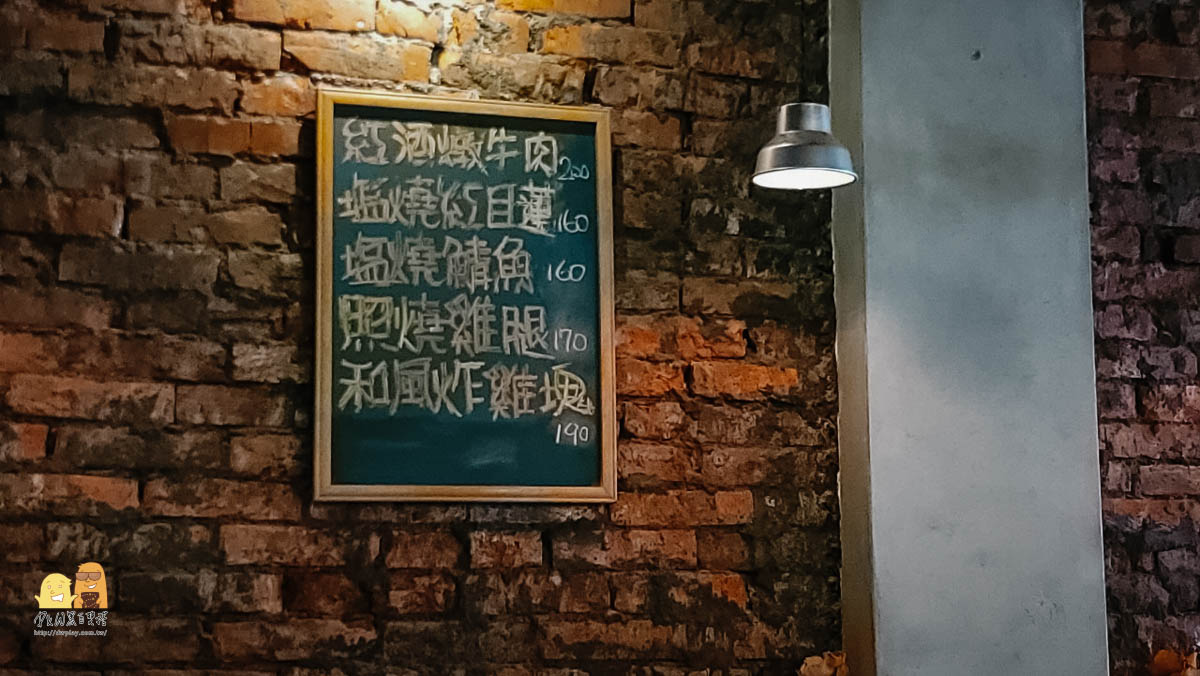 紅酒燉牛肉 200
塩燒紅目蓮 160
塩燒鯖魚 160
照燒雞腿 170
和風炸雞塊
190
http://dwplay.com.tw/